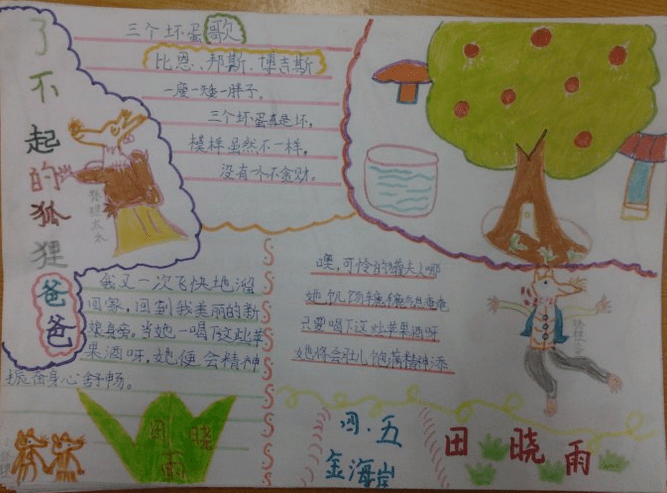 了不起的狐狸爸爸
三个坏蛋歌
比恩、邦斯、博吉斯
一瘦一矮一胖子。
三个坏蛋真是坏,
模样虽然不一样,
没有一个不贪财。
狐狸太太
我又一次飞快地溜
回家,回到我美丽的新
娘身旁。当她一喝下这些苹
果酒呀,她便会精神
振奋身心舒畅。
噢,可怜的獾夫人哪
她饥肠辘辘
只要喝下这些苹果酒呀
她将会壮儿饱满精神添
田晓雨
四.五
金海岸
田晓雨